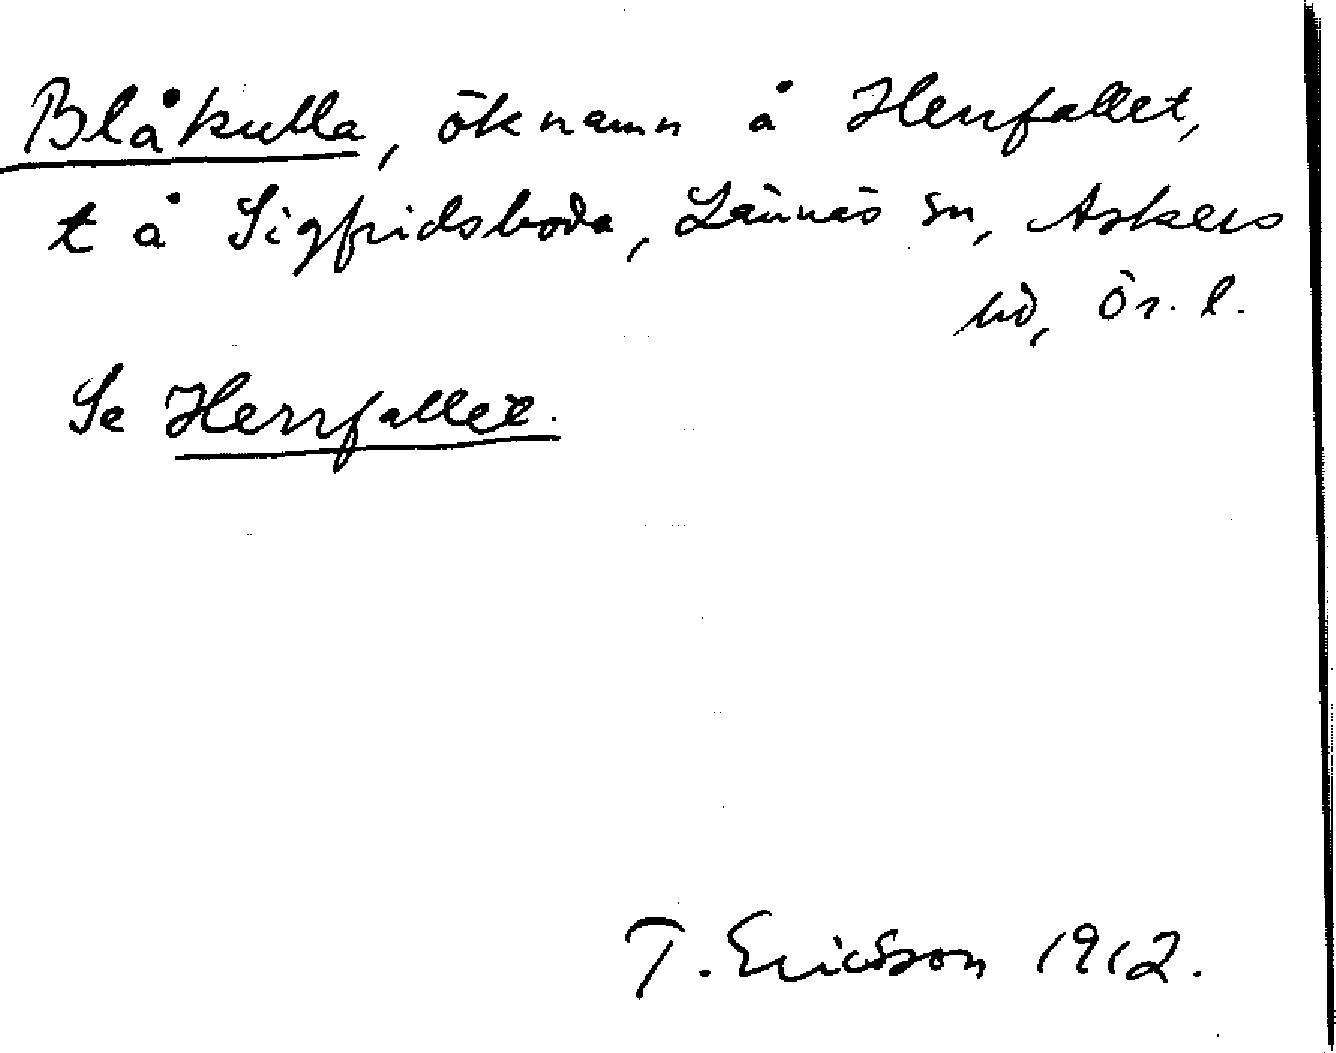 Blåkulla, öknamn å Herrfallet,
t å Sigfridsboda, Lännäs sn, Askers
hd, Ör. l.
Se Herrfallet.
T. Ericsson 1912.